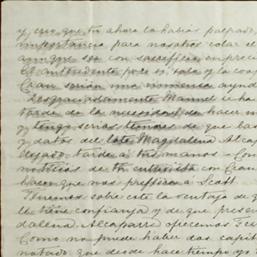 y creo que tu ahora la habias palpado,
importancia para nosotros colar el
aunque sea con sacrificio empre
El intendente pide es toda y la coop
Cuan serian una inmensa ayud
Desgraciadamente Manuel se ha
tarde de la necesidad de hacer
y tengo serios temores de que las
y datos del lote Magdalena Alcap
llegado tarde a tus manos - Con
noticias de tu entrevista con Cuan
hacen que nos prefiera a Scott
Tenemos sobre este la ventaja de q
le tiene confianza y de que presen
dalena, Alcaparra ofrecemos
Como no puede haber dos capit
notado que desde hace tiempo yo